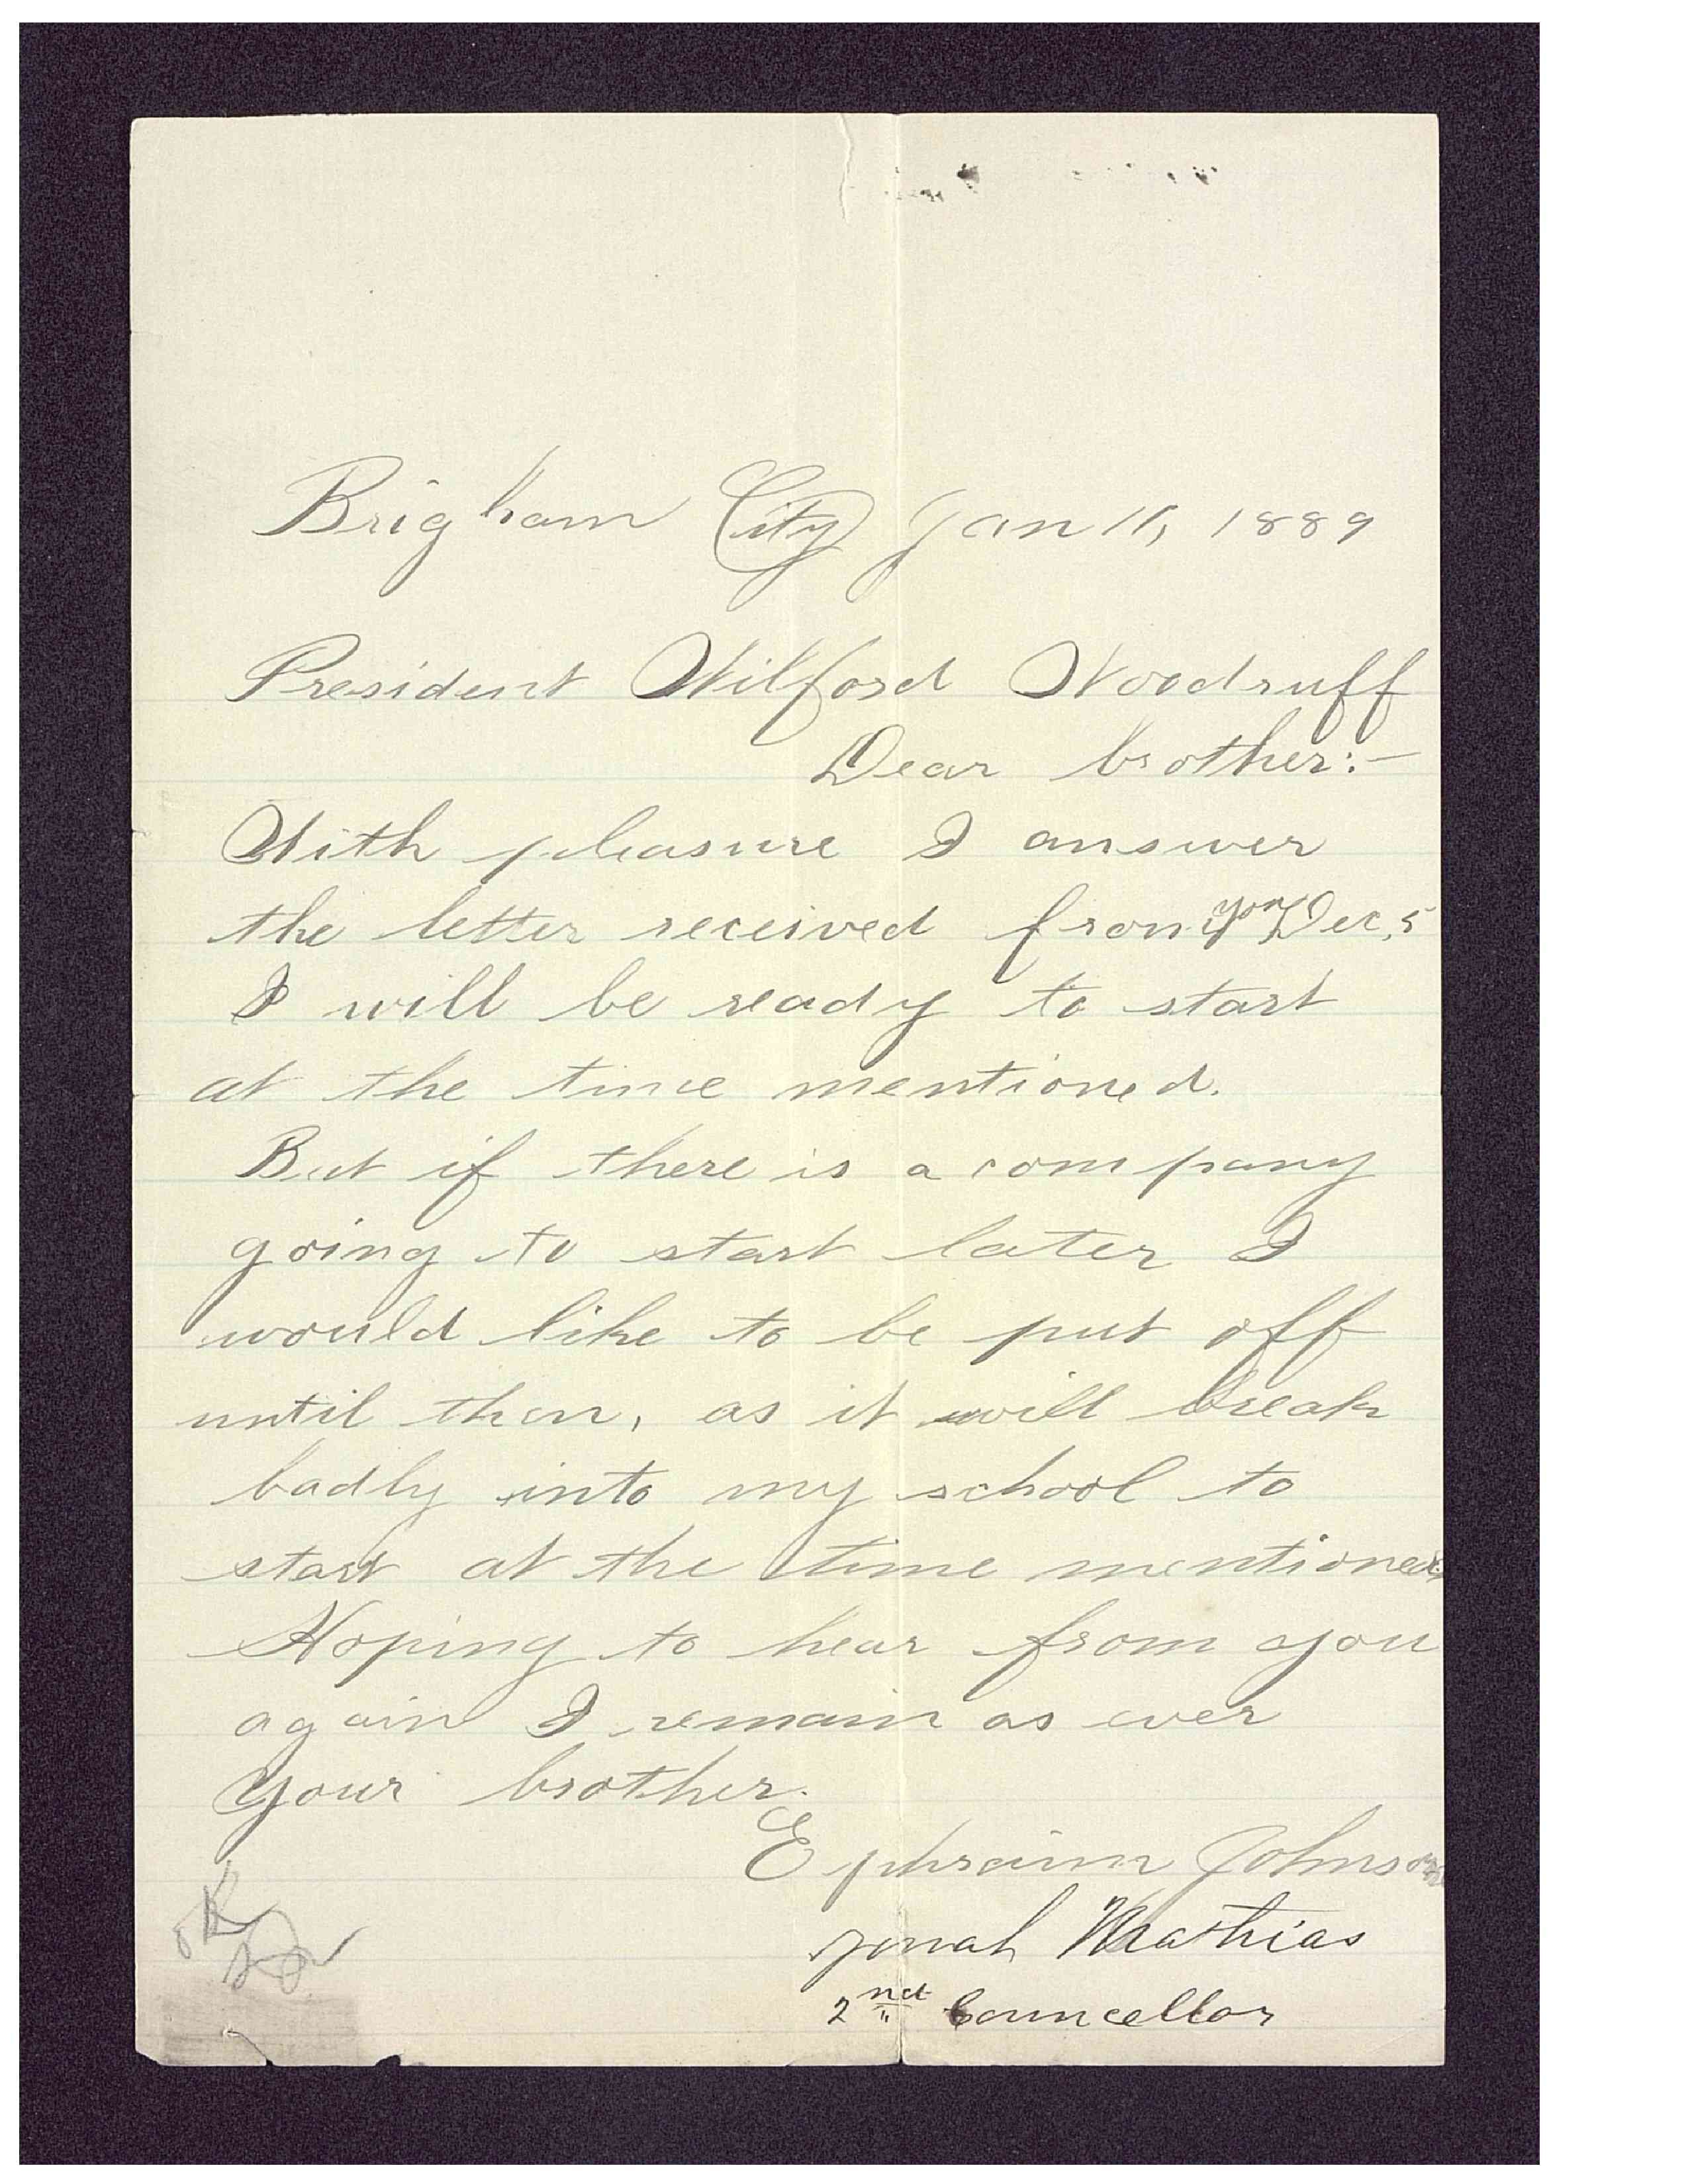 Brigham City Jan 11, 1889
President Wilford Woodruff
Dear brother:-
With pleasure I answer
the letter received from you Dec, 5
I will be ready to start
at the time mentioned.
But if there is a company
going to start later I
would like to be put off
until then, as it will break
badly into my school to
start at the time mentioned.
Hoping to hear from you
again I remain as ever
Your brother.
Ephraim Johnson
Jonah Mathias
2nd Councellor